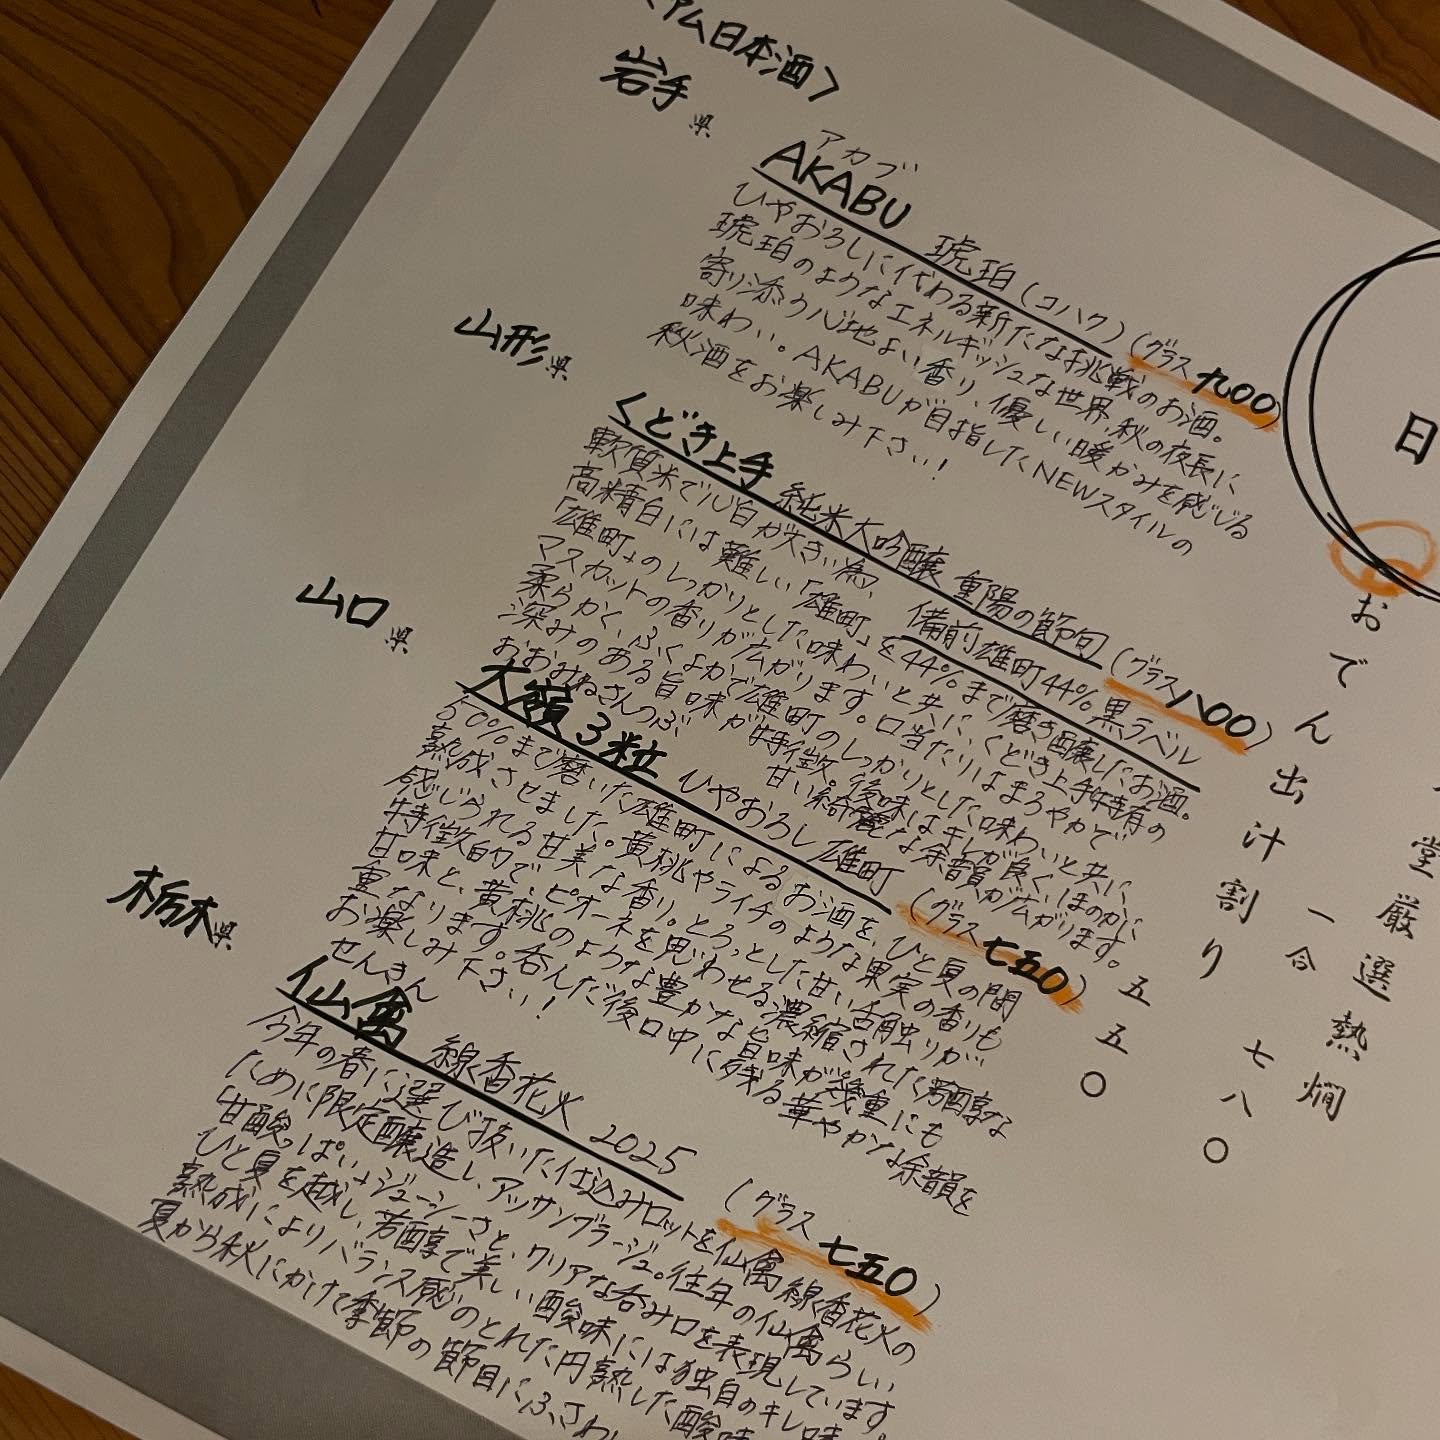 アム日本酒〉
岩手県
アカブ
AKABU 琥珀(コハク)(グラス九〇〇)
ひやおろしに代わる新たな挑戦のお酒。
琥珀のようなエネルギッシュな世界、秋の夜長に
寄り添う心地よい香り、優しい暖かみを感じる
味わい。AKABUが目指したNEWスタイルの
秋酒をお楽しみ下さい!
山形県
くどき上手 純米大吟醸 重陽の節句(グラス八〇〇)
備前雄町44%黒ラベル
軟質米で心白が大きい為、
高精白には難しい「雄町」を44%まで磨き醸したお酒。
「雄町」のしっかりとした味わいと共に、くどき上手特有の
マスカットの香りが広がります。口当たりはまろやかで
柔らかく、ふくよかで雄町のしっかりとした味わいと共に
深みのある旨味が特徴。後味はキレが良く、ほのかに
甘い綺麗な余韻が広がります。
山口県
おおみねさんつぶ
大嶺3粒 ひやおろし 雄町(グラス七五〇)
50%まで磨いた雄町によるお酒を、ひと夏の間
熟成させました。黄桃やライチのような果実の香りも
感じられる甘美な香り。とろっとした甘い舌触りが
特徴的で、ピオーネを思わせる濃縮された芳醇な
甘味と、黄桃のような豊かな旨味が幾重にも
重なります。呑んだ後口中に残る華やかな余韻を
お楽しみ下さい!
栃木県
せんきん
仙禽 線香花火 2025(グラス七五〇)
今年の春に選び抜いた仕込みロットを仙禽線香花火の
ために限定醸造し、アッサンブラージュ。往年の仙禽らしい
「甘酸っぱい」ジューシーさと、クリアな呑み口を表現しています。
ひと夏を越し、芳醇で美しい酸味には独自のキレ味
熟成によりバランス感のとれた円熟した酸味
夏から秋にかけて季節の節目にふさわし
日
おでん出汁割り 五五〇
堂厳選熱燗
一合 七八〇